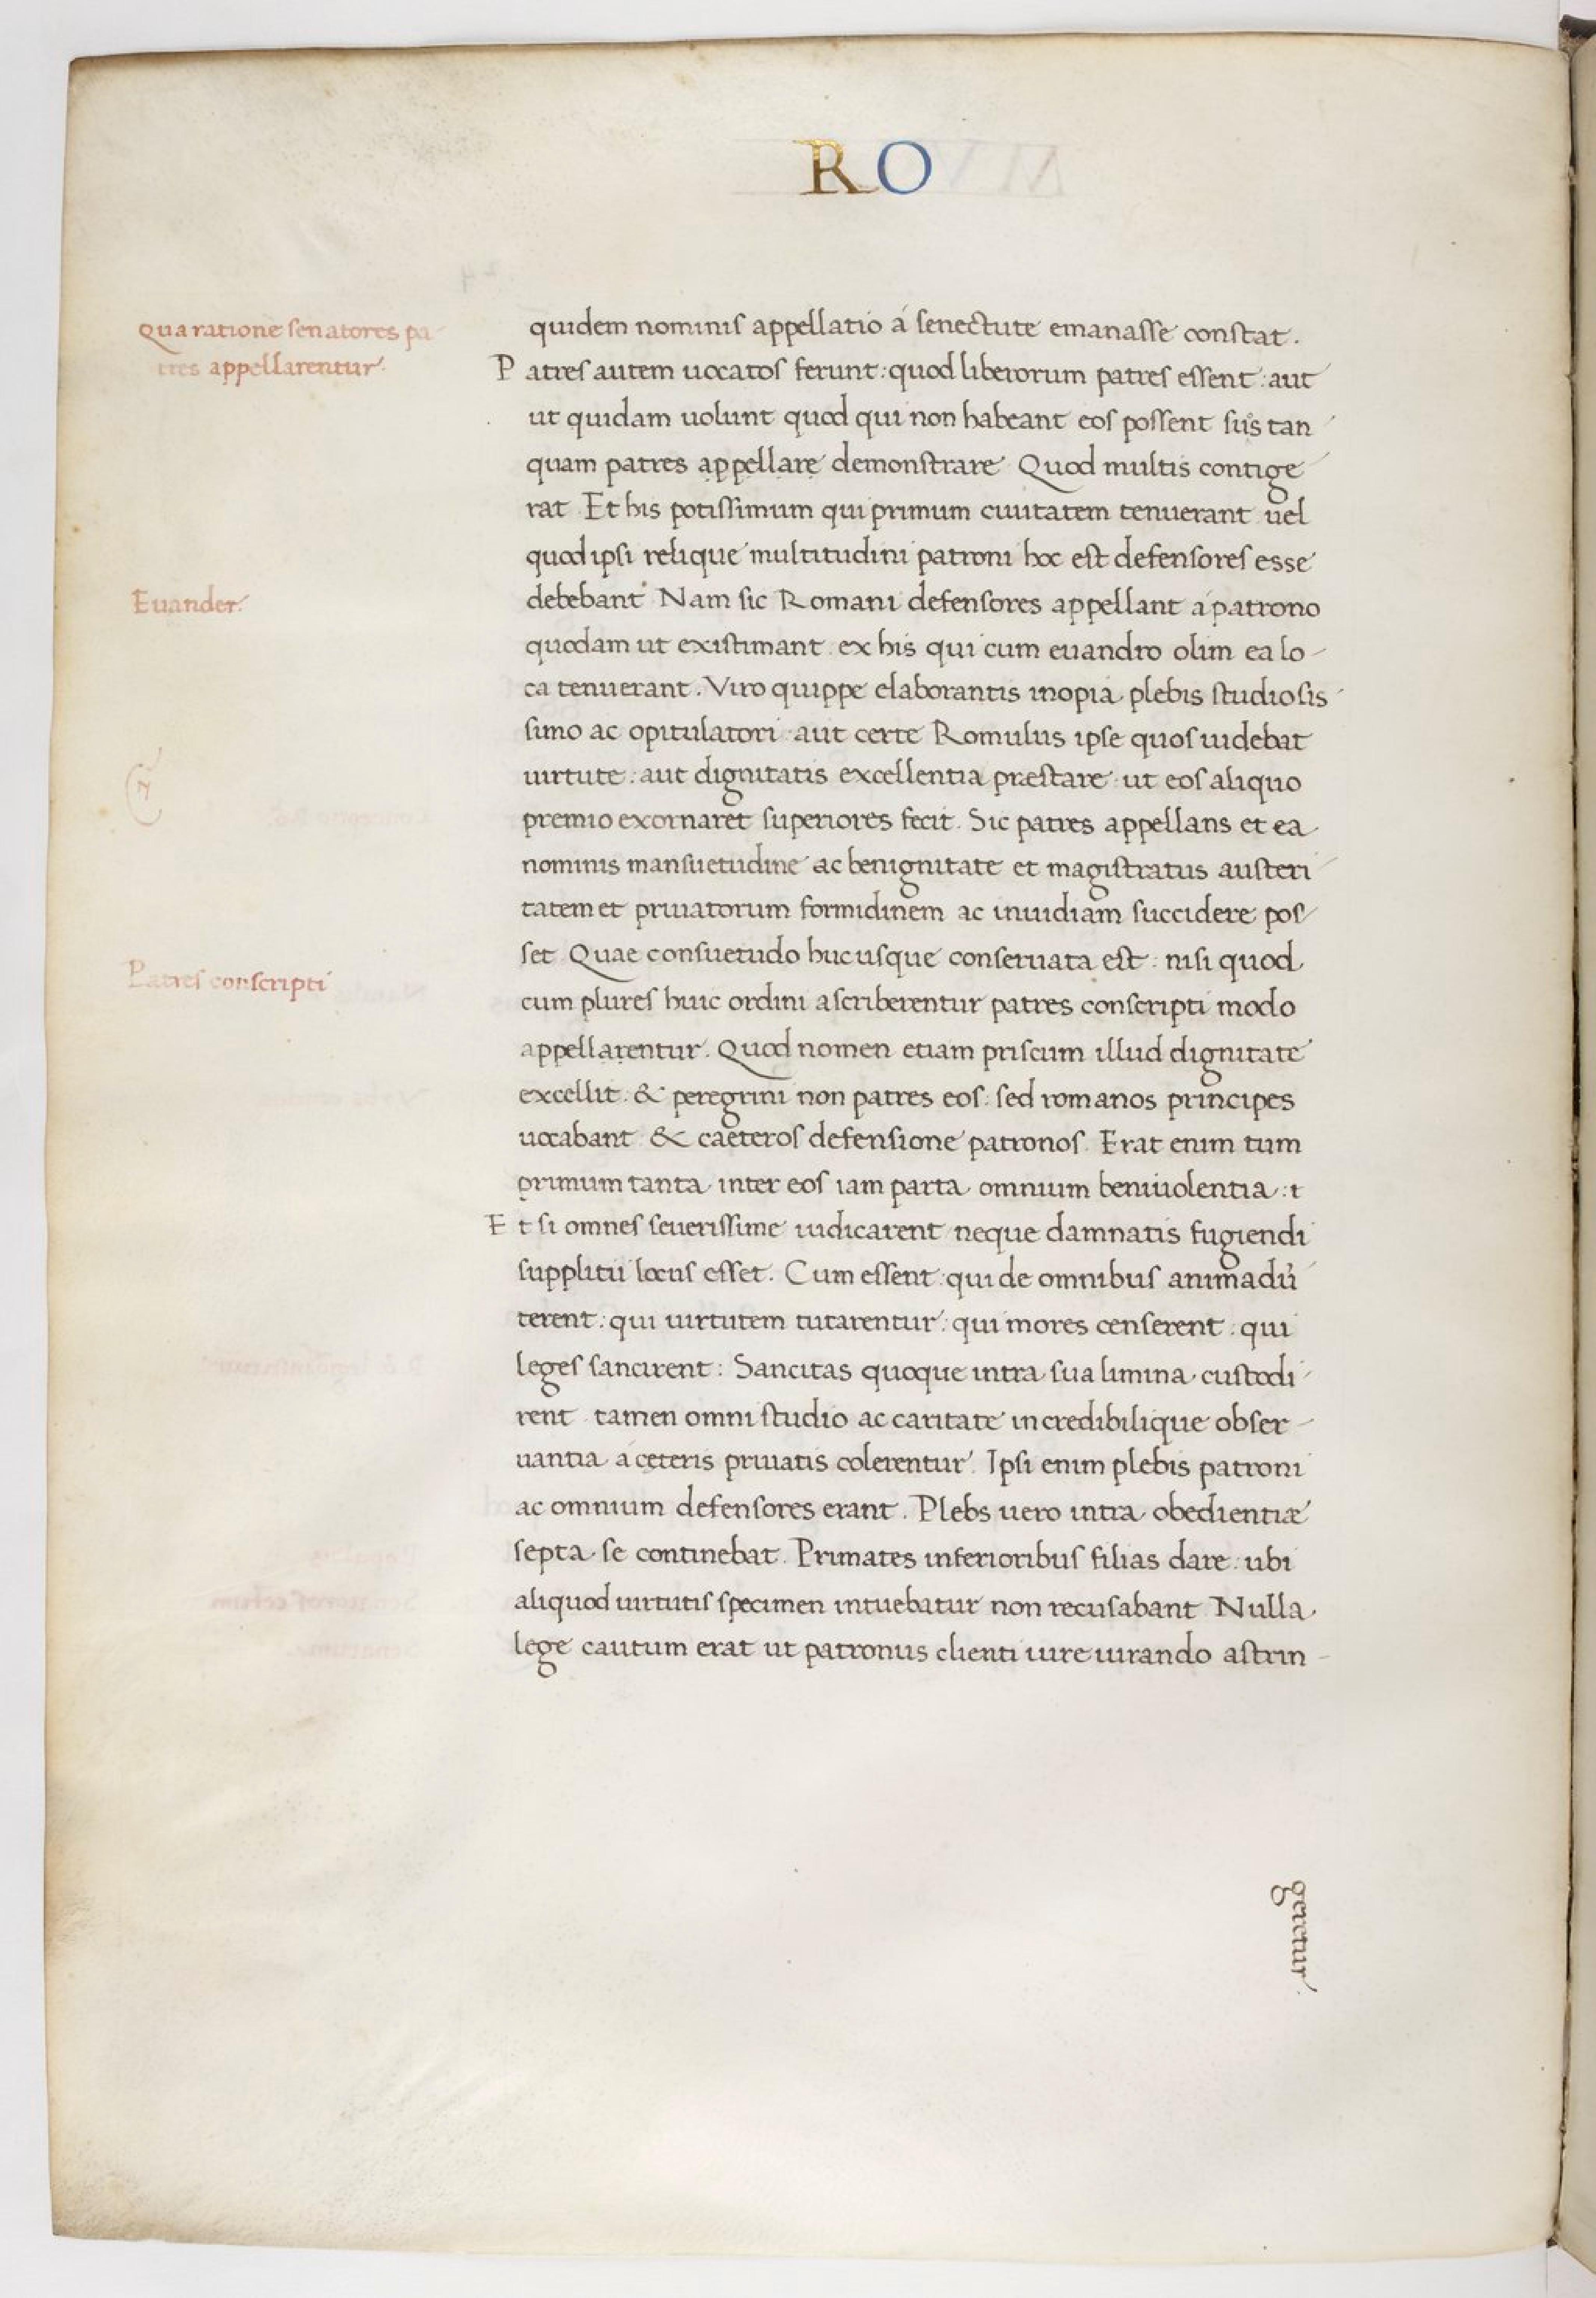 RO
Qua ratione senatores pa
tres appellarentur.
quidem nominis appellatio á senectute emanasse constat.
Patres autem uocatos ferunt: quod liberorum patres essent: aut
ut quidam uolunt quod qui non habeant eos possent suis tan
quam patres appellare demonstrare Quod multis contige
rat Et his potissimum qui primum ciuitatem tenuerant uel
quod ipsi relique multitudini patroni hoc est defensores esse
Euander.
debebant Nam sic Romani defensores appellant á patrono
quodam ut existimant ex his qui cum euandro olim ea lo-
ca tenuerant. Viro quippe elaborantis inopia plebis studiosis
simo ac opitulatori aut certe Romulus ipse quos uidebat
uirtute: aut dignitatis excellentia præstare ut eos aliquo
premio exornaret superiores fecit. Sic patres appellans et ea
nominis mansuetudine ac benignitate et magistratus austeri
tatem et priuatorum formidinem ac inuidiam succidere pos
set Quae consuetudo huc usque conseruata est: nisi quod
Patres conscripti
cum plures huic ordini ascriberentur patres conscripti modo
appellarentur. Quod nomen etiam priscum illud dignitate
excellit: & peregrini non patres eos: sed romanos principes
uocabant & caeteros defensione patronos. Erat enim tum
primum tanta inter eos iam parta omnium beniuolentia: t
Et si omnes seuerissime iudicarent neque damnatis fugiendi
supplitii locus esset. Cum essent: qui de omnibus animadu
terent: qui uirtutem tutarentur: qui mores censerent: qui
leges sancirent: Sancitas quoque intra sua limina custodi
rent tamen omni studio ac caritate incredibilique obser-
uantia á ceteris priuatis colerentur. Ipsi enim plebis patroni
ac omnium defensores erant. Plebs uero intra obedientiæ
septa se continebat. Primates inferioribus filias dare: ubi
aliquod uirtutis specimen intuebatur non recusabant Nulla
lege cautum erat ut patronus clienti iure iurando astrin-
geretur.